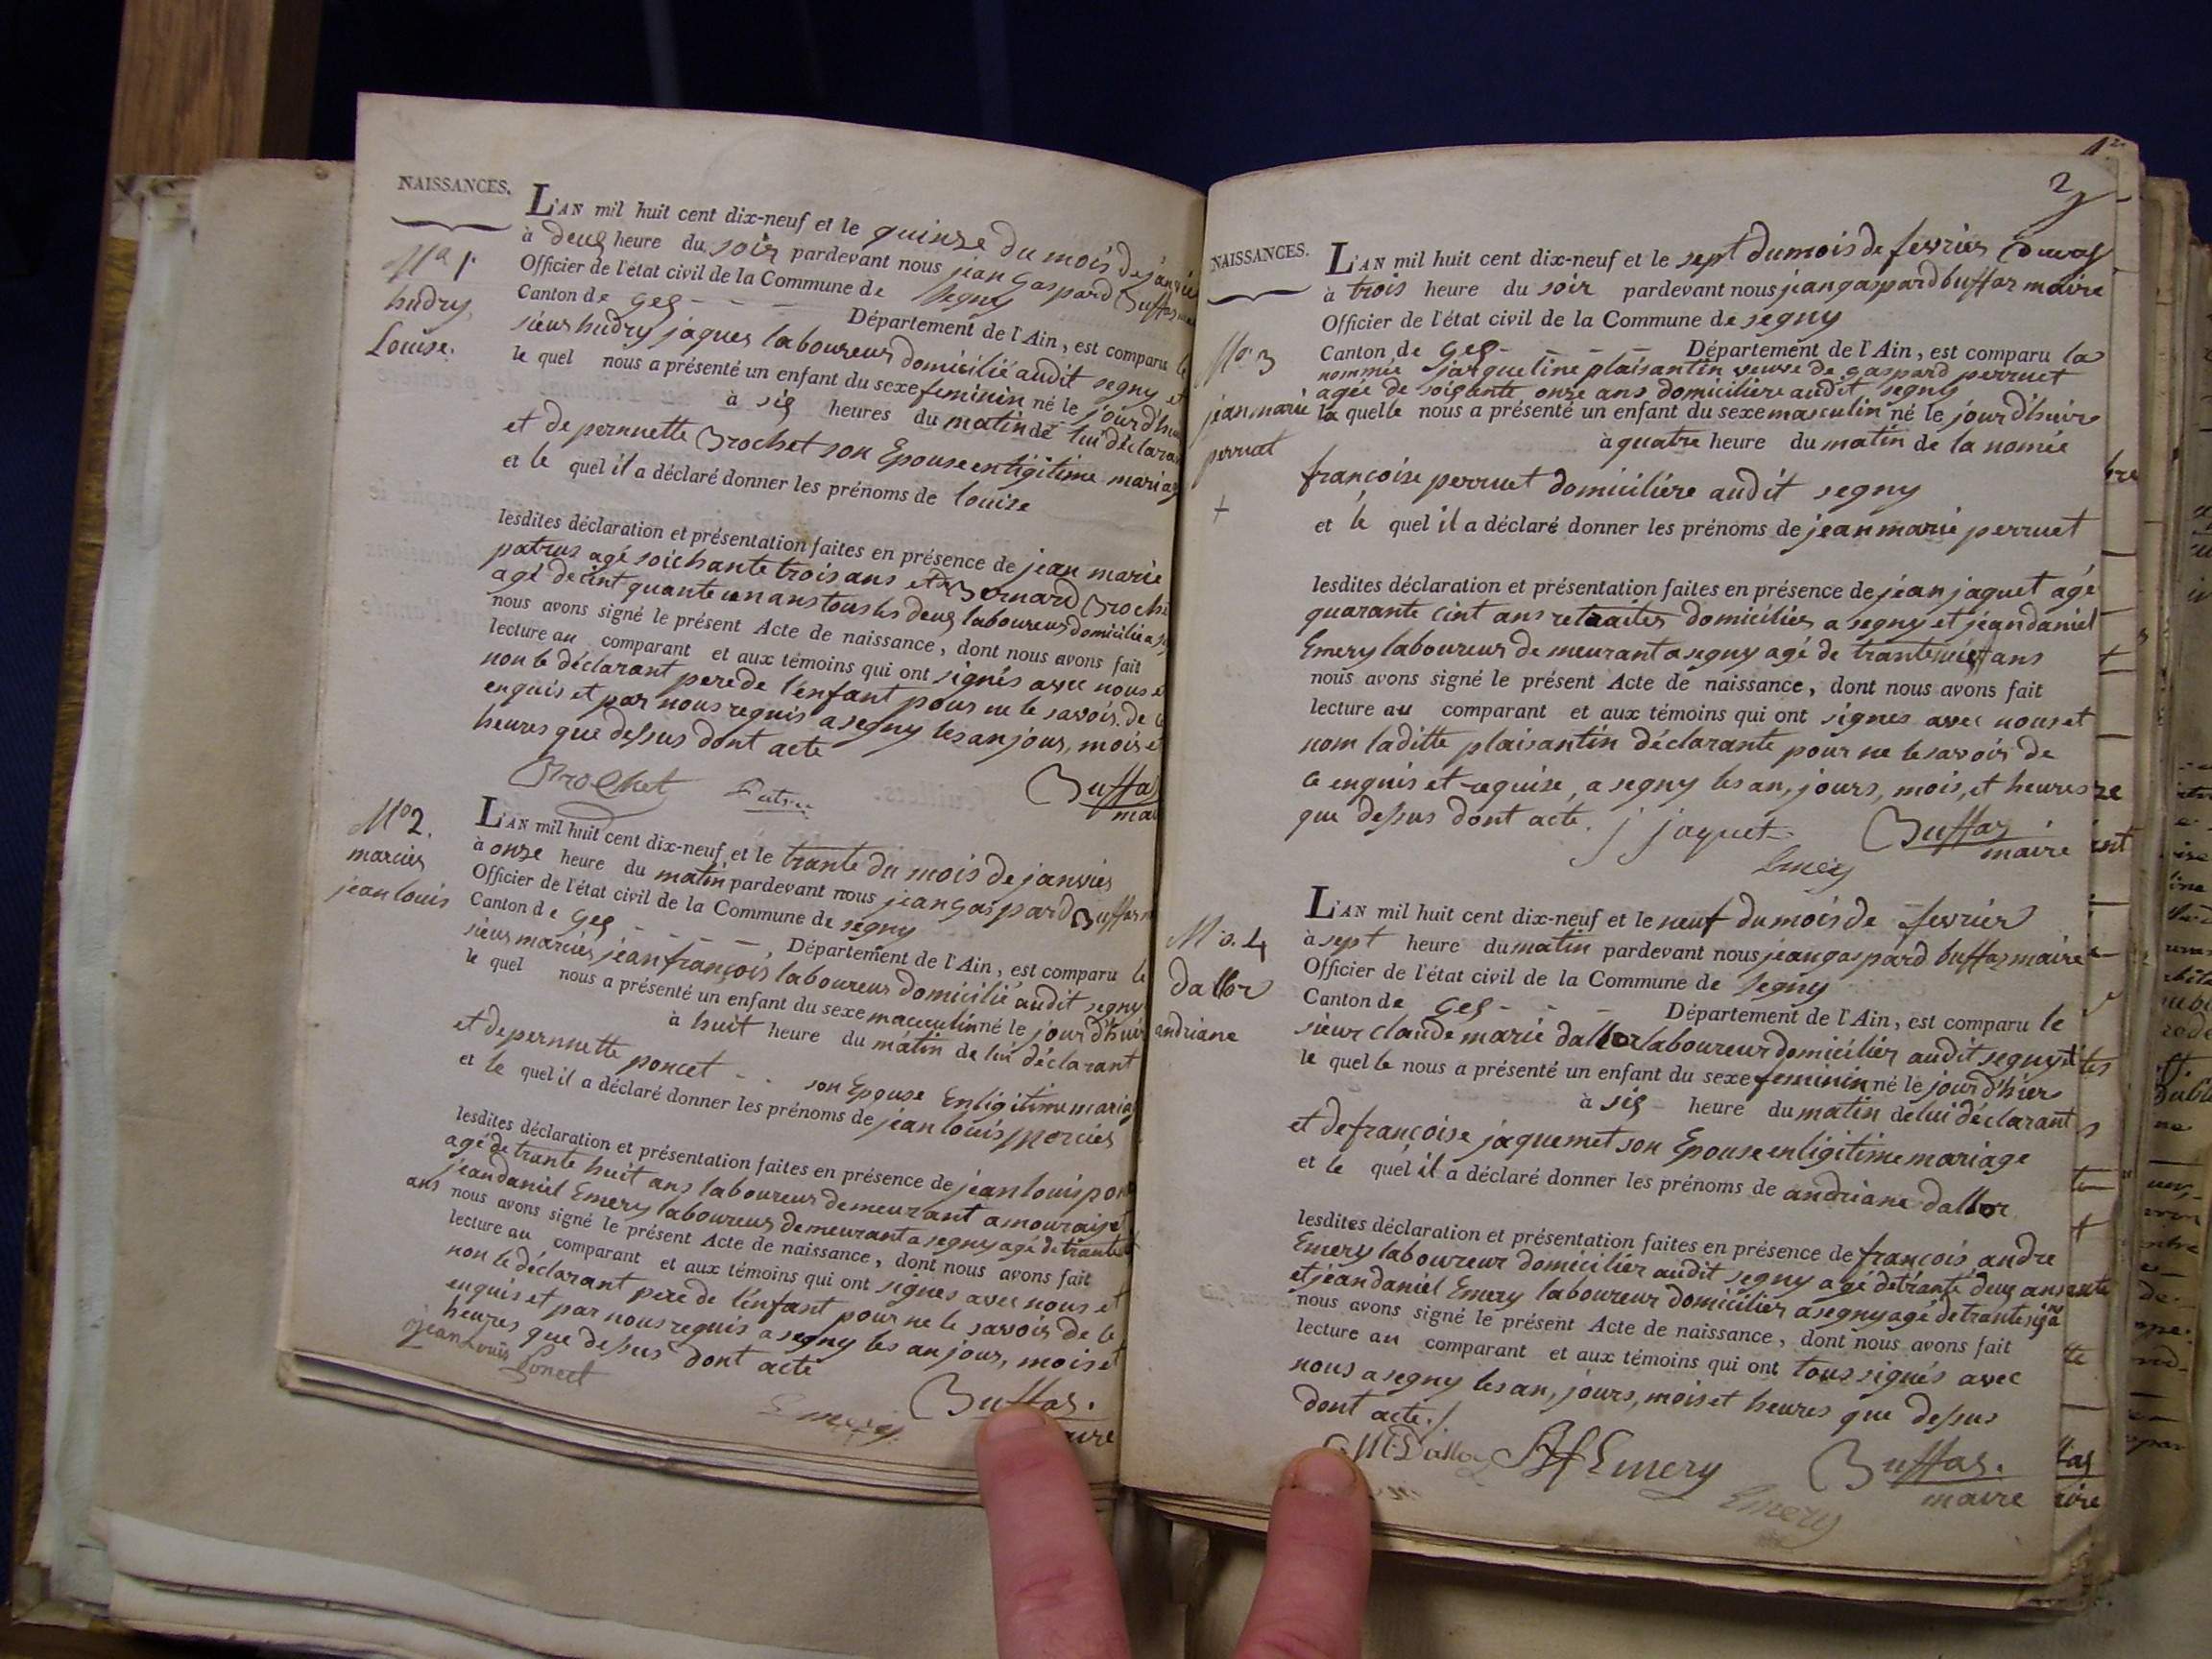 NAISSANCES.
L'AN mil huit cent dix-neuf et le quinze du mois de janvie
à deux heure du soir pardevant nous jean gaspard Buffaz
Officier de l'état civil de la Commune de Segny
Canton de gex - - - Département de l'Ain, est comparu le
sieur hudry jaques laboureur domicilié audit segny et
le quel nous a présenté un enfant du sexe feminin né le jourd'hui
à six heures du matin de lui déclarant
et de pernnette Brochet son Epouse en ligitime mariag
et le quel il a déclaré donner les prénoms de louize
lesdites déclaration et présentation faites en présence de jean marie
patruz agé soichante trois ans et Bernard Broche
agé de cint quante un ans tous les deux laboureurs domicilié a
nous avons signé le présent Acte de naissance, dont nous avons fait
lecture au comparant et aux témoins qui ont signés avec nous et
non le déclarant pere de l'enfant pour ne le savoir. de ce
enquis et par nous requis a segny les an jour, mois et
heures que dessus dont acte
Brochet
Buffa
mai
N° 1.
hudry
Louise.
N° 2.
marcier
jean louis
L'AN mil huit cent dix-neuf et le trante du mois de janvier
à onze heure du matin pardevant nous jean gaspard Buffaz m
Officier de l'état civil de la Commune de segny
Canton de gex - - - - Département de l'Ain, est comparu le
sieur marcier jean françois laboureur domicilié audit segny
le quel nous a présenté un enfant du sexe masculin né le jourd'hui
à huit heure du matin de lui déclarant
et de pernnette poncet - - son Epouse En ligitime mariag
et le quel il a déclaré donner les prénoms de jean louis mercier
lesdites déclaration et présentation faites en présence de jean louis pon
agé de trante huit ans laboureur demeurant a mouraix et
jean daniel Emery laboureur demeurant a segny agé de trante
ans nous avons signé le présent Acte de naissance, dont nous avons fait
lecture au comparant et aux témoins qui ont signés avec nous et
non le déclarant pere de l'enfant pour ne le savoir de le
enquis et par nous requis a segny les an jour, mois et
heures que dessus dont acte
jean Louis Poncet
Emery
Buffaz.
aire
2
NAISSANCES.
L'AN mil huit cent dix-neuf et le sept du mois de fevrier
à trois heure du soir pardevant nous jean gaspard buffaz maire
Officier de l'état civil de la Commune de segny
Canton de gex - - - - Département de l'Ain, est comparu la
nommée jacqueline plaisantin veuve de gaspard perruet
agée de soixante onze ans domiciliere audit segny
la quelle nous a présenté un enfant du sexe masculin né le jourd'huir
à quatre heure du matin de la nomée
françoise perruet domiciliére audit segny
et le quel il a déclaré donner les prénoms de jean marie perruet
N° 3
jean marie
perruet
+
lesdites déclaration et présentation faites en présence de jéan jaquet agé
quarante cint ans retraiter domicilier a segny et jean daniel
Emery laboureur demeurant a segny agé de trante ans
nous avons signé le présent Acte de naissance, dont nous avons fait
lecture au comparant et aux témoins qui ont signes avec nous et
nom laditte plaisantin déclarante pour ne le savoir de
ce enquis et requise, a segny les an, jours, mois, et heures
que dessus dont acte.
j jaquet
Emery
Buffaz
maire
N°. 4
dallor
andriane
L'AN mil huit cent dix-neuf et le neuf du mois de fevrier
à sept heure du matin pardevant nous jean gaspard buffaz maire
Officier de l'état civil de la Commune de Segny
Canton de gex - - - Département de l'Ain, est comparu le
sieur claude marie dallor laboureur domicilier audit segny
le quel le nous a présenté un enfant du sexe feminin né le jourd'hier
à six heure du matin de lui déclarant
et de françoise jaquemet son Epouse en ligitime mariage
et le quel il a déclaré donner les prénoms de andriane dallor
lesdites déclaration et présentation faites en présence de françois andre
Emery laboureur domicilier audit segny agé de trante deux ans
et jean daniel Emery laboureur domicilier a segny agé de trante six
nous avons signé le présent Acte de naissance, dont nous avons fait
lecture au comparant et aux témoins qui ont tous signés avec
nous a segny les an, jours, mois et heures que dessus
dont acte./
Emery
Emery
Buffaz.
maire